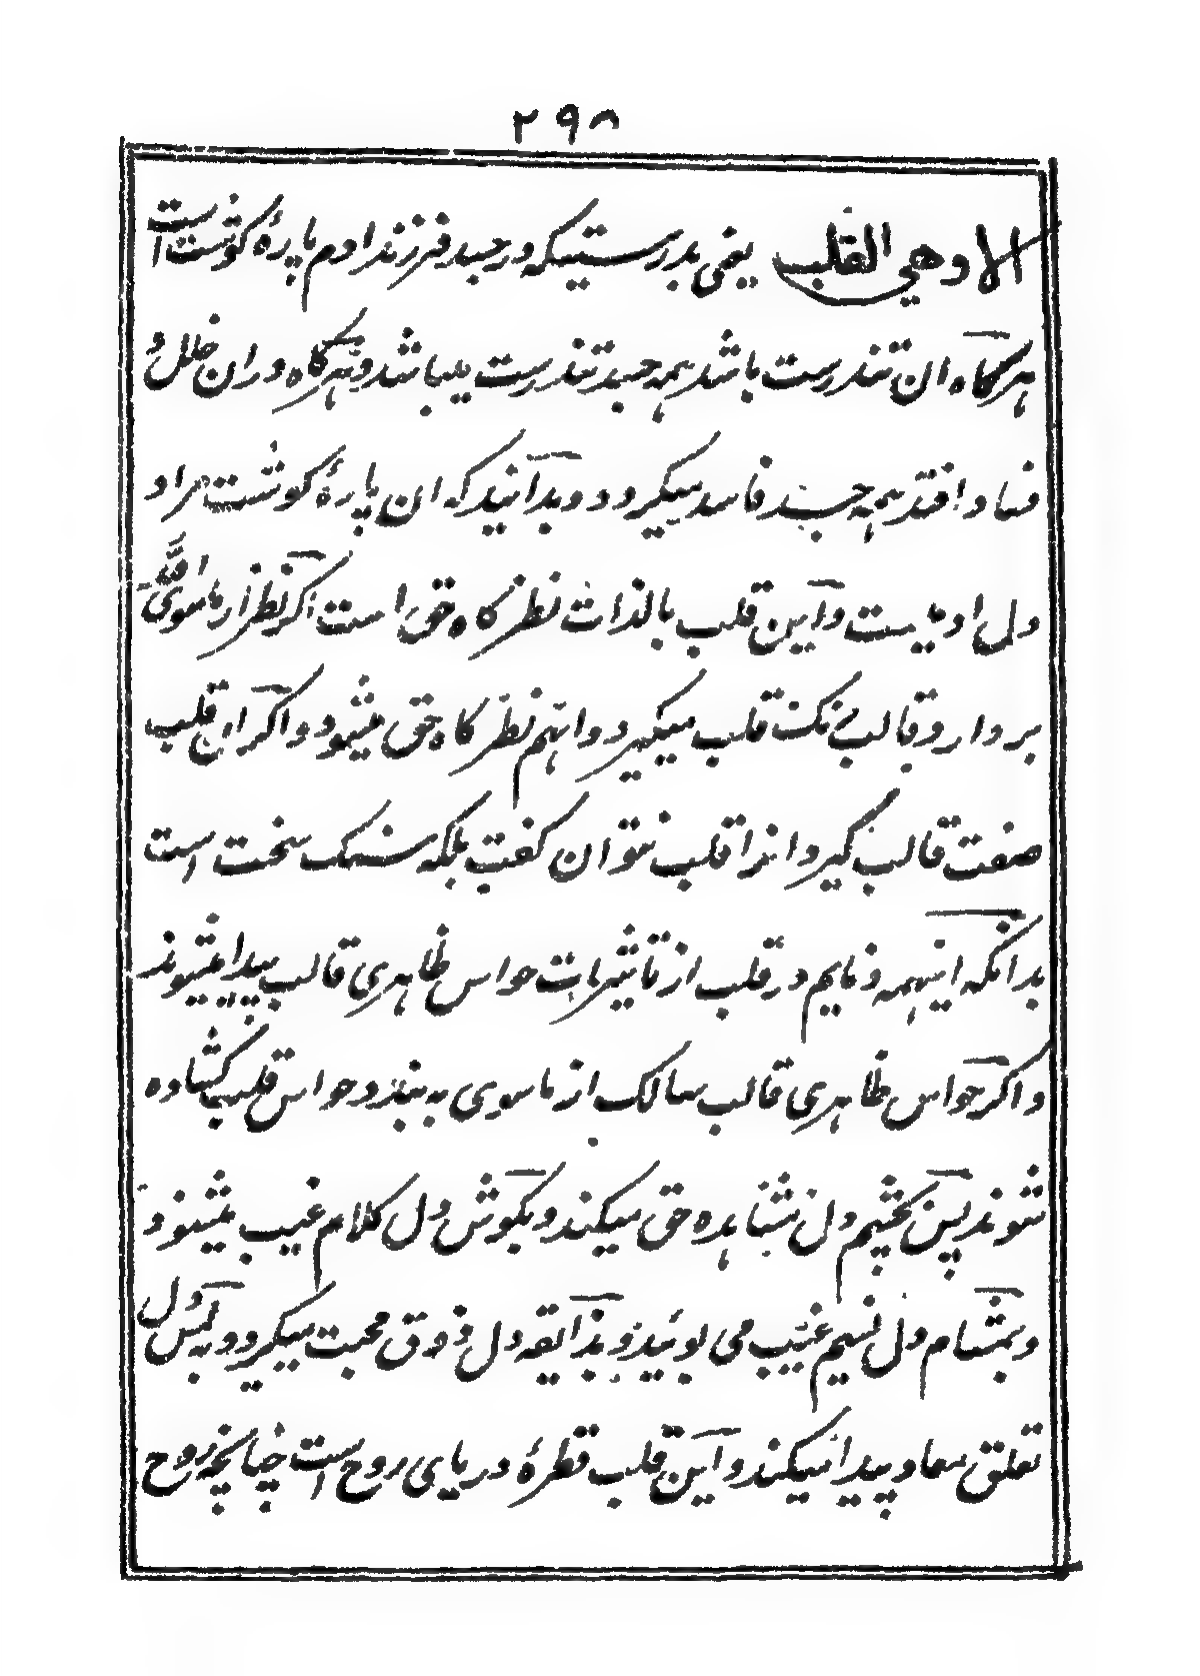 ۲۹۸
الا وهي القلب یعنی بدرستیکه در جسد فرزند ادم پارهٔ گوشت است
هرگاه ان تندرست باشد همه جسد تندرست میباشد و هرگاه در ان خلل و
فساد افتد همه جسد فاسد میگردد و بدانید که ان پارهٔ گوشت مراد
دل ادمیست و این قلب بالذات نظرگاه حق است اگر نظر از ماسوی الله
بردارد و قالب بی نکت قلب میگیرد و انهم نظرگاه حق میشود و اگر ان قلب
صفت قالب گیرد انرا قلب نتوان گفت بلکه سنگ سخت است
بدانکه اینهمه ذمایم در قلب از تاثیرات حواس ظاهری قالب پیدا میشوند
و اگر حواس ظاهری قالب سالک از ماسوی به بندد حواس قلب کشاده
شوند پس بچشم دل مشاهده حق میکند و بگوش دل کلام غیب میشنود
و بمشام دل نسیم غیب می بوئید و بذائقه دل ذوق محبت میگیرد و به لمس دل
تعلق سماد پیدا میکند و این قلب قطرهٔ دریای روح است چنانچه روح